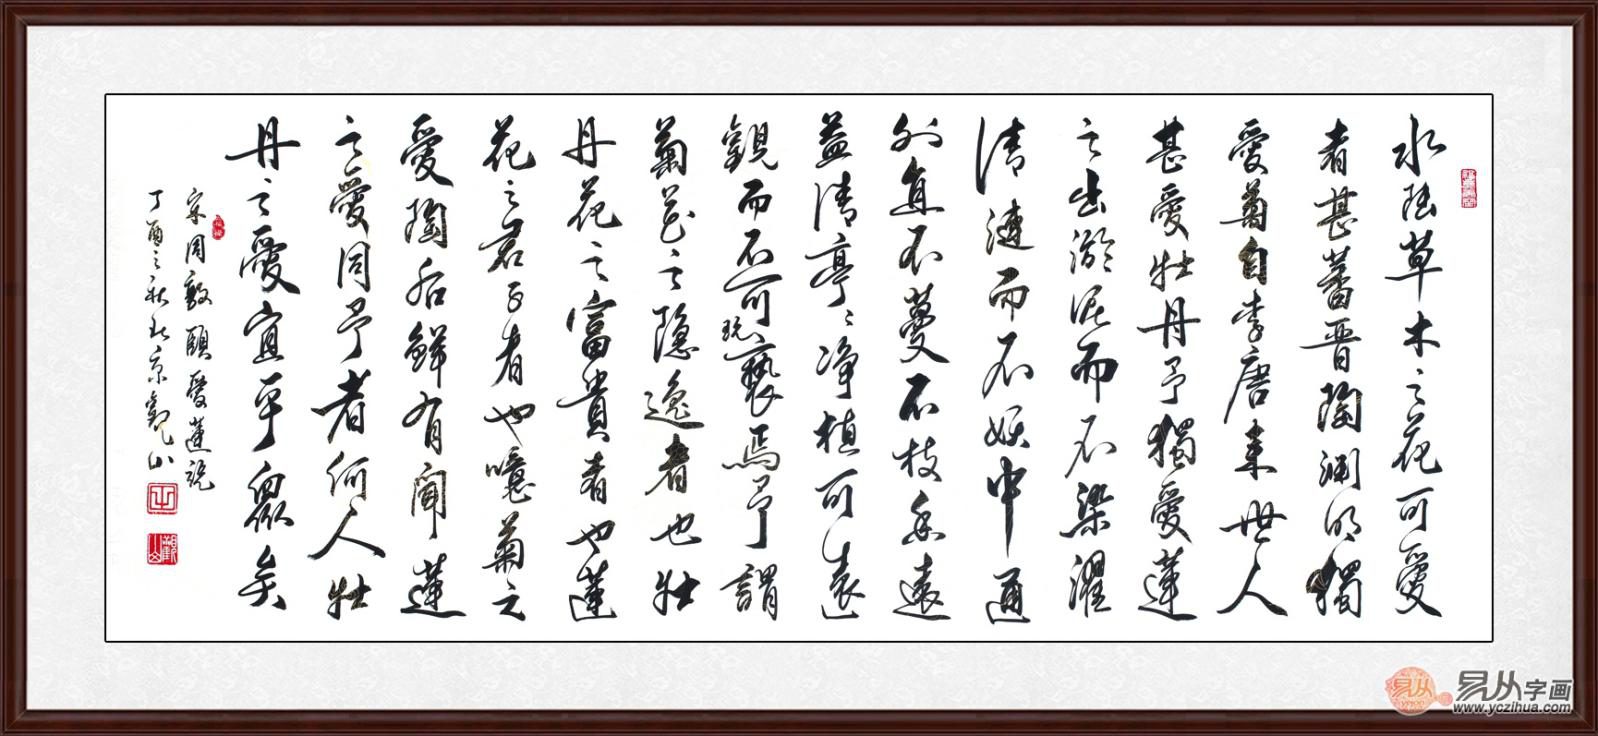 水陸草木之花可愛
者甚蕃晉陶淵明獨
愛菊自李唐来世人
甚愛牡丹予獨愛蓮
之出淤泥而不染濯
清漣而不妖中通
外直不蔓不枝香遠
益清亭〻净植可遠
觀而不可玩褻焉予謂
菊花之隱逸者也牡
丹花之富貴者也蓮
花之君子者也噫菊之
愛陶后鮮有聞蓮
之愛同予者何人牡
丹之愛宜乎衆矣
宋周敦頤愛蓮説
丁酉之秋北京觀山
觀山
易从
易从字画
www.yczihua.com